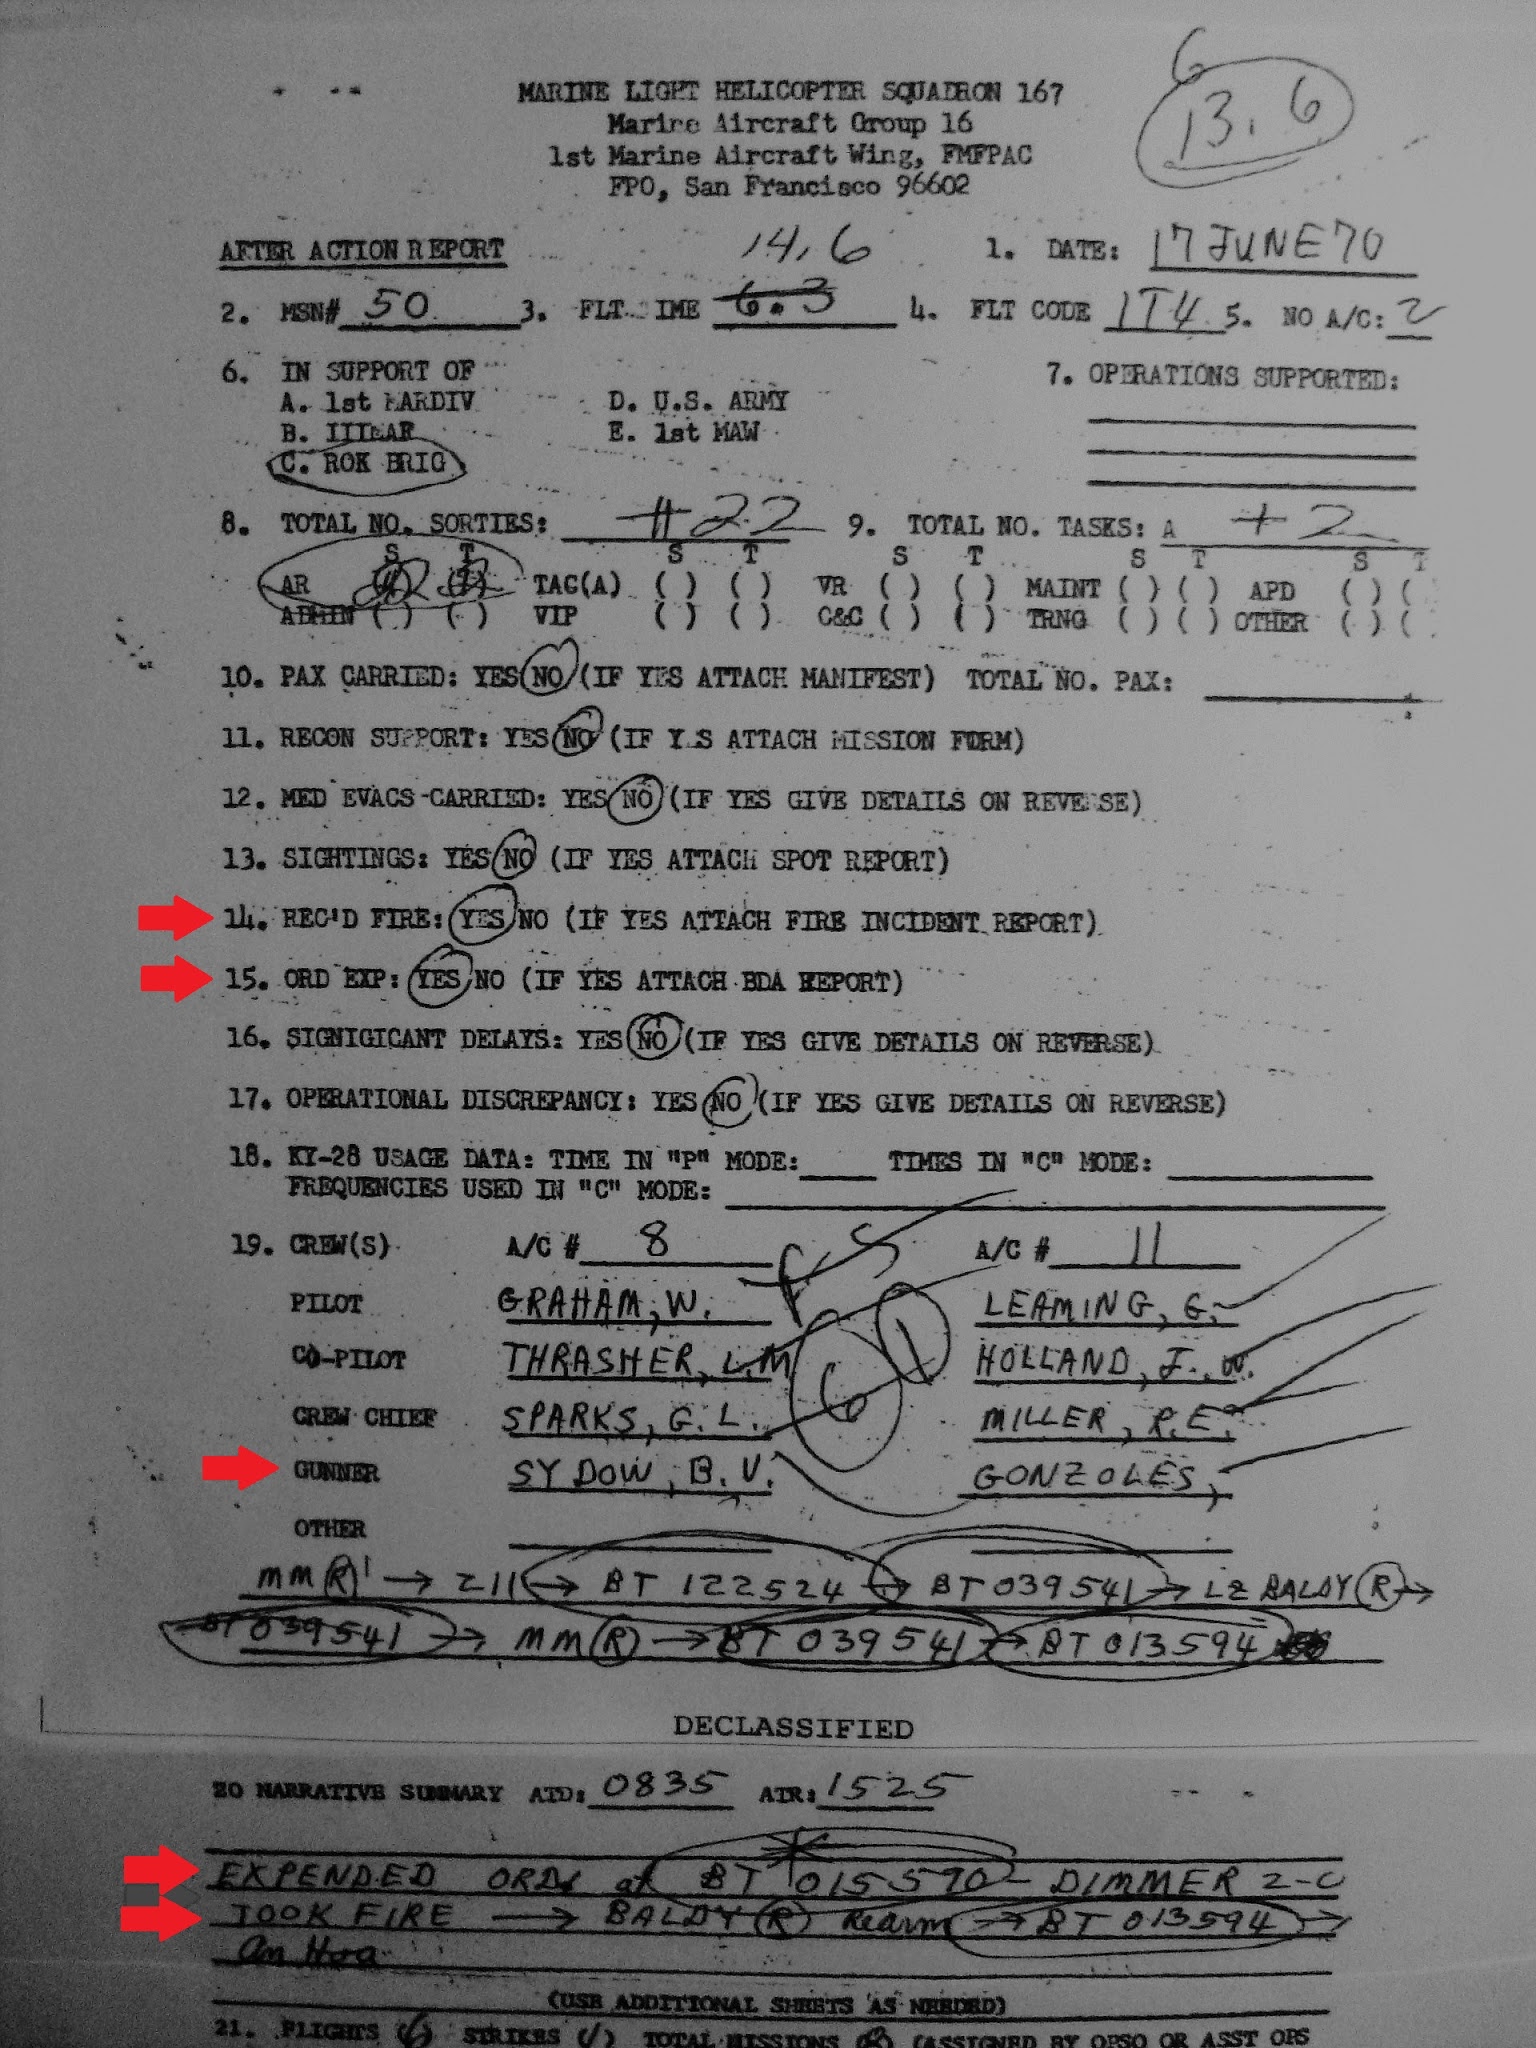 6
13.6
MARINE LIGHT HELICOPTER SQUADRON 167
Marine Aircraft Group 16
1st Marine Aircraft Wing, FMFPAC
FPO, San Francisco 96602
AFTER ACTION REPORT 14.6 1. DATE: 17 JUNE 70
2. MSN# 50 3. FLT IME 6.3 4. FLT CODE 1T4 5. NO A/C: 2
6. IN SUPPORT OF 7. OPERATIONS SUPPORTED:
A. 1st MARDIV D. U.S. ARMY
B. IIIMAF E. 1st MAW
C. ROK BRIG
8. TOTAL NO. SORTIES: 22 9. TOTAL NO. TASKS: A 2
S T S T S T S T S T
AR TAC(A) ( ) ( ) VR ( ) ( ) MAINT ( ) ( ) APD ( ) (
ADMIN ( ) ( ) VIP ( ) ( ) C&C ( ) ( ) TRNG ( ) ( ) OTHER ( ) (
10. PAX CARRIED: YES NO (IF YES ATTACH MANIFEST) TOTAL NO. PAX:
11. RECON SUPPORT: YES NO (IF Y.S ATTACH MISSION FORM)
12. MED EVACS CARRIED: YES NO (IF YES GIVE DETAILS ON REVERSE)
13. SIGHTINGS: YES NO (IF YES ATTACH SPOT REPORT)
14. REC'D FIRE: YES NO (IF YES ATTACH FIRE INCIDENT REPORT)
15. ORD EXP: YES NO (IF YES ATTACH BDA REPORT)
16. SIGNIGICANT DELAYS: YES NO (IF YES GIVE DETAILS ON REVERSE)
17. OPERATIONAL DISCREPANCY: YES NO (IF YES GIVE DETAILS ON REVERSE)
18. KY-28 USAGE DATA: TIME IN "P" MODE: TIMES IN "C" MODE:
FREQUENCIES USED IN "C" MODE:
19. CREW(S) A/C # 8 A/C # 11
PILOT GRAHAM, W. LEAMING, G.
CO-PILOT THRASHER, L.M HOLLAND, J.W.
CREW CHIEF SPARKS, G.L. 6 MILLER, R.E.
GUNNER SYDOW, B.V. GONZOLES,
OTHER
MM (R) → Z11 → BT 122524 → BT 039541 → LZ BALDY (R) →
BT 039541 → MM (R) → BT 039541 → BT 013594
DECLASSIFIED
20 NARRATIVE SUMMARY ATD: 0835 ATR: 1525
EXPENDED ORDS at BT 015590 - DIMMER 2-C
TOOK FIRE → BALDY (R) Rearm → BT 013594 →
An Hoa
(USE ADDITIONAL SHEETS AS NEEDED)
21. FLIGHTS (6) STRIKES (1) TOTAL MISSIONS (ASSIGNED BY OPSO OR ASST OPS